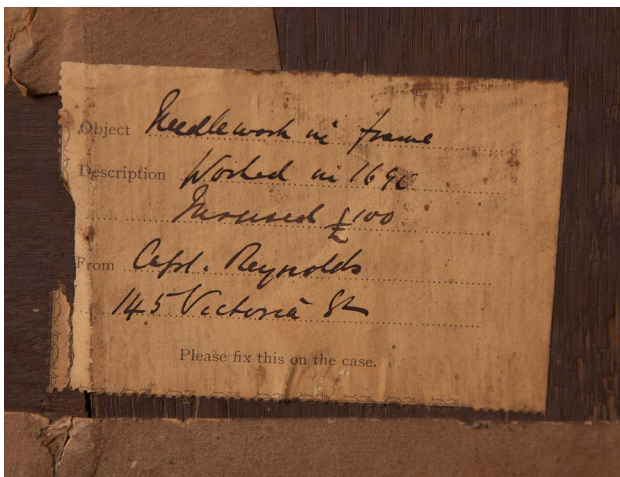 Object Needlework in frame
Description Worked in 1690
Insured £100
From Capt. Reynolds
145 Victoria St
Please fix this on the case.